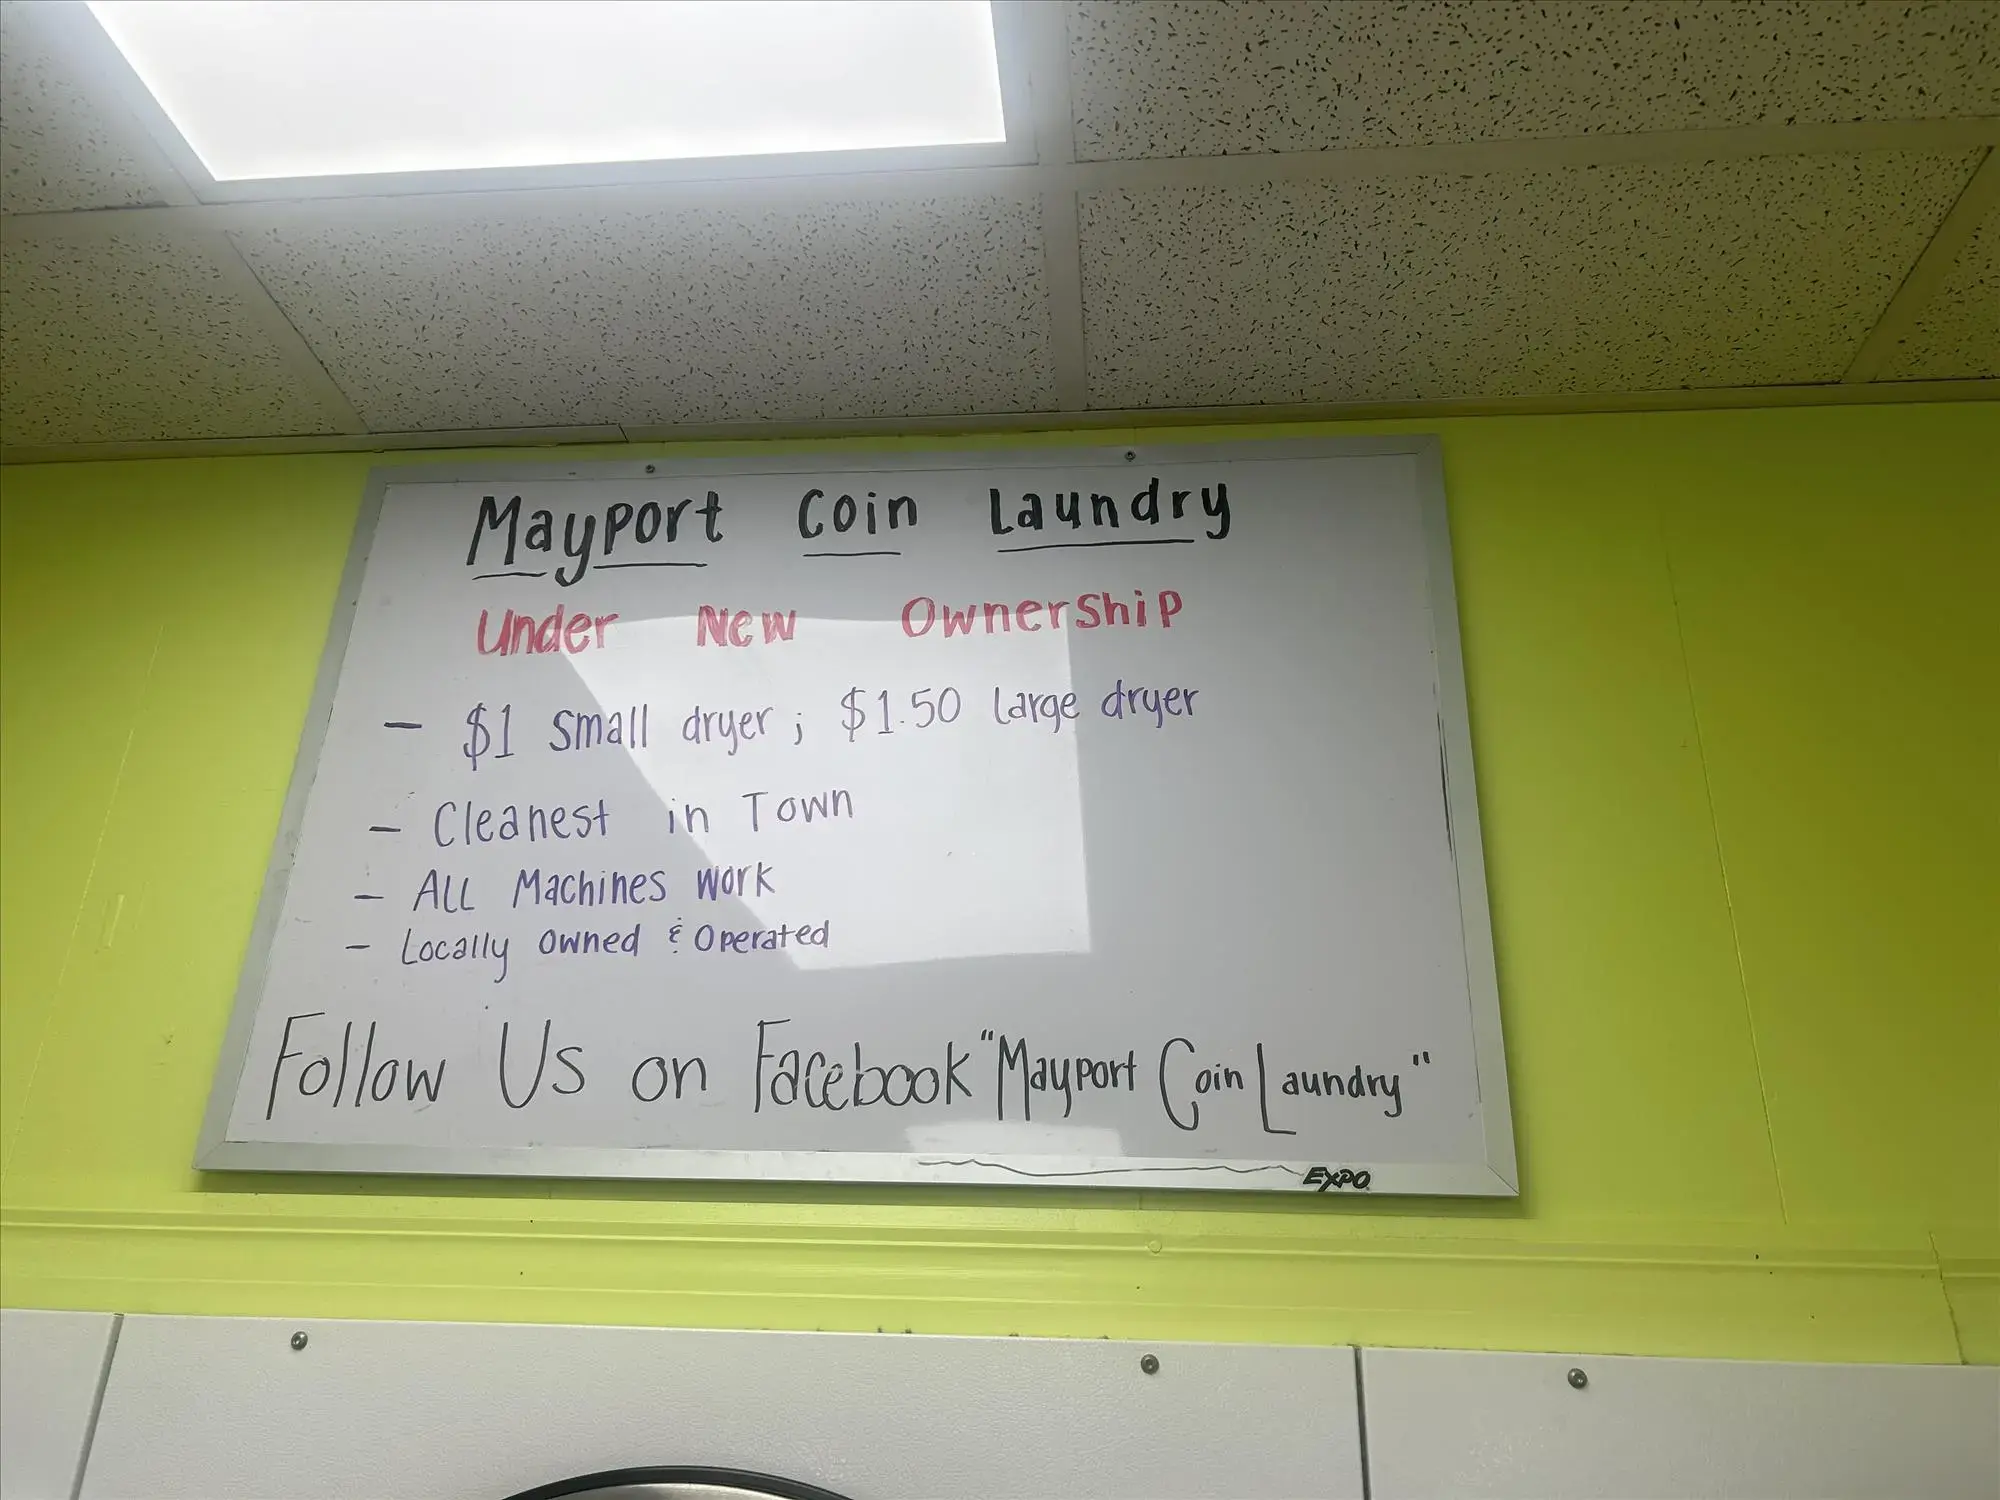 Mayport Coin Laundry
Under New Ownership
- $1 Small dryer; $1.50 Large dryer
- Cleanest in Town
- ALL Machines Work
- Locally Owned & Operated
Follow Us on Facebook "Mayport Coin Laundry"
EXPO